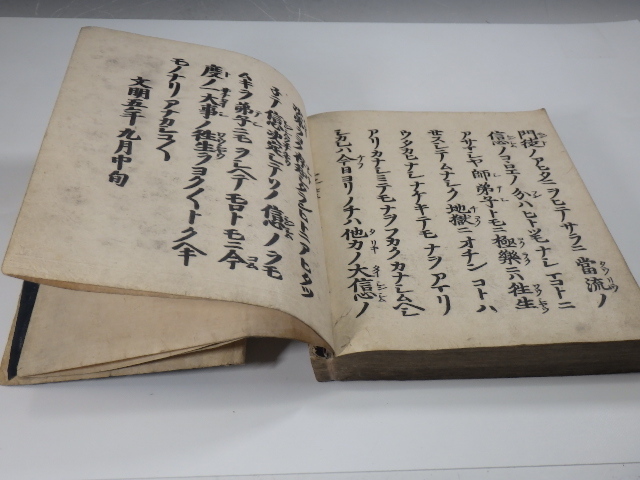 門徒ノアヒタニヲヒテサラニ當流ノ
信心ノコヽロエノ分ハヒトツモナシマコトニ
アサマシヤ師弟子トモニ極樂ニハ往生
サスシテムナシク地獄ニオチンコトハ
ウタカヒナシナケキテモナヲアマリ
アリカナシミテモナヲフカクカナシムヘシ
シカレハ今日ヨリノチハ他力ノ大信心ノ
ネテ信心決定シテソノ信心ノヲモ
ムキヲ弟子ニモヲシヘテモロトモニ今
度ノ一大事ノ往生ヲヨク〱トクヘキ
モノナリアナカシコ〱
文明五年九月中旬